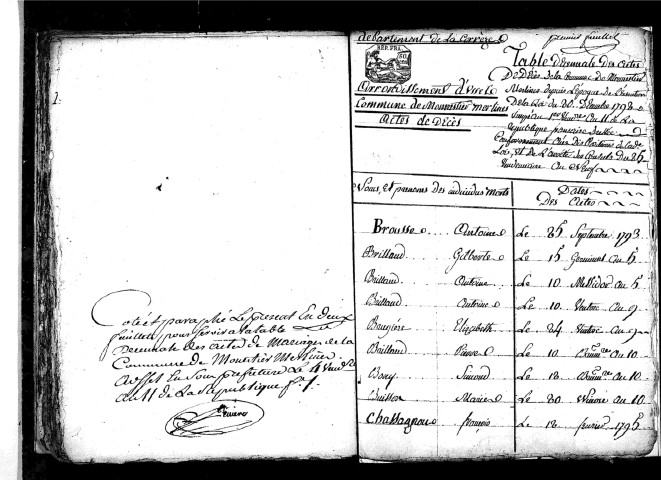 Coté et paraphé Le present En deux
feuillets pour servir a la table
Decennale Des actes de Mariages de la
Commune de
au 11 de La Republique f.se
Departement de La Correze
premier feuillet
REP. FRA.
Arrondissement d'Ussel
Commune de Monestier merlines
Actes de Décès
Table Decennale Des Actes
De Décès de la Commune de Monestier
Merlines depuis L'epoque de
De la Loi du 20 1792
jusqu'au 1er Vend.re an 11 de La
Republique française
Conformement
Loi, et de L'arrêté des Consuls Du 25
an Neuf
Noms, et prenoms des individus morts
Dates
Des Actes
Brousse Antoine Le 25 Septembre 1793
Brillaud Gilberte Le 15 Germinal an 5
Brillaud Antoine Le 10 Messidor an 5
Brillaud Antoine Le 10 Ventose an 9
Brugière Elizabeth Le 24 Ventose an 9
Brillaud Pierre Le 10 Brum.re an 10
Bony Simond Le 18 Brum.re an 10
Buisson Marie Le 20 Nivose an 10
Chassagnou françois Le 18 fevrier 1795